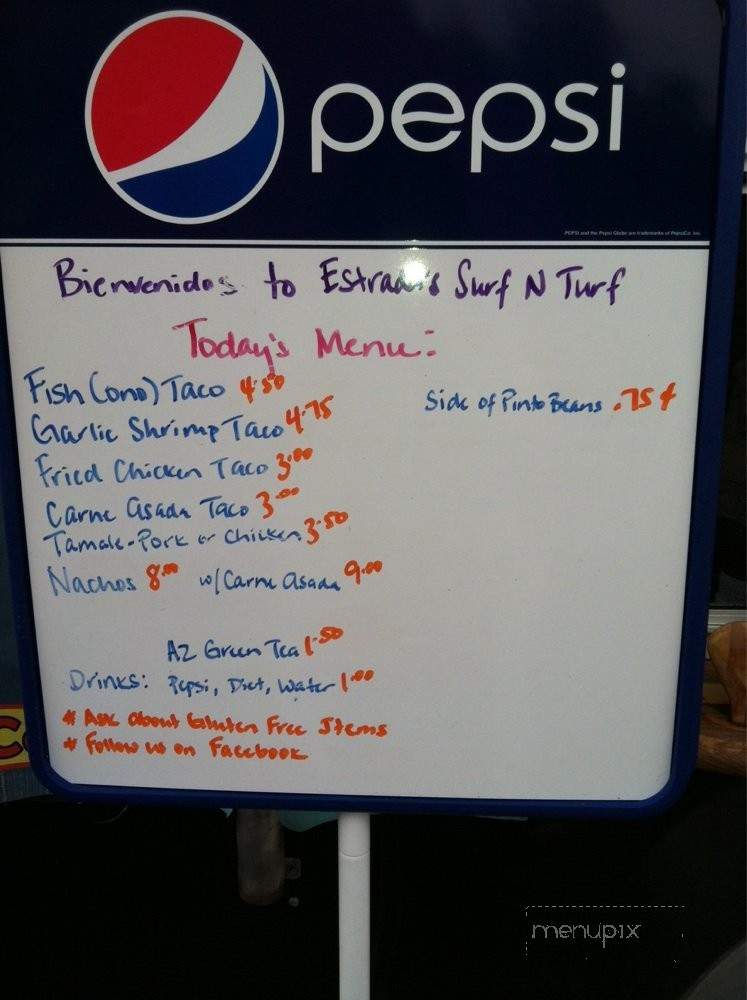 pepsi
PEPSI and the Pepsi Globe are trademarks of PepsiCo, Inc.
Bienvenidos to Estrada's Surf N Turf
Today's Menu:
Fish (ono) Taco 4.50
Side of Pinto Beans .75 ¢
Garlic Shrimp Taco 4.75
Fried Chicken Taco 3.00
Carne Asada Taco 3.00
Tamale-Pork or Chicken 3.50
Nachos 8.00 w/Carne Asada 9.00
AZ Green Tea 1.50
Drinks: Pepsi, Diet, Water 1.00
* Ask about Gluten Free Items
* Follow us on Facebook
menupix